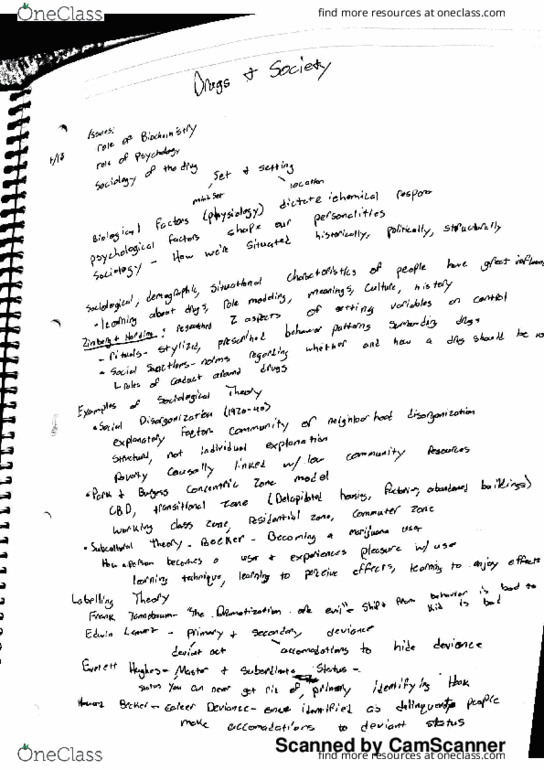 OneClass
find more resources at oneclass.com
Drugs & Society
Issues:
4/18
role of Biochemistry
role of Psychology
Sociology of the drug
Set & setting
mindset
location
Biological Factors (physiology) dictate chemical respon
psychological factors shape our personalities
Sociology - How we're situated historically, politically, structurally
Sociological, demographic, situational characteristics of people have great influen
• learning about drugs, role modeling, meanings, culture, history
Zinberg & Harding: researched 2 aspects of setting variables on control
- rituals - stylized, prescribed behavior patterns surrounding drugs
• Social Sanctions - norms regarding whether and how a drug should be
rules of conduct around drugs
Examples of Sociological Theory
• Social Disorganization (1920-40)
explanatory Factor: community or neighborhood disorganization
structural, not individual explanation
Poverty causally linked w/ low community resources
• Park & Burgess Concentric Zone model
CBD, transitional zone (Delapidated housing, factories, abandoned buildings)
working class zone, residential zone, commuter zone
• Subcultural Theory - Becker - Becoming a marijuana user
How a person becomes a user & experiences pleasure w/ use
learning technique, learning to perceive effects, learning to enjoy effects
Labelling Theory
Frank Tannenbaum - "the Dramatization of evil" - shift from behavior is bad to
kid is bad
Edwin Lemert - Primary & secondary deviance
deviant act
accomodations to hide deviance
Everett Hughes - Master & Subordinate Status -
status you can never get rid of, primary identifying
Howard Becker - Career Deviance - once identified as delinquent, people
make accomodations to deviant status
Scanned by CamScanner
OneClass
find more resources at oneclass.com